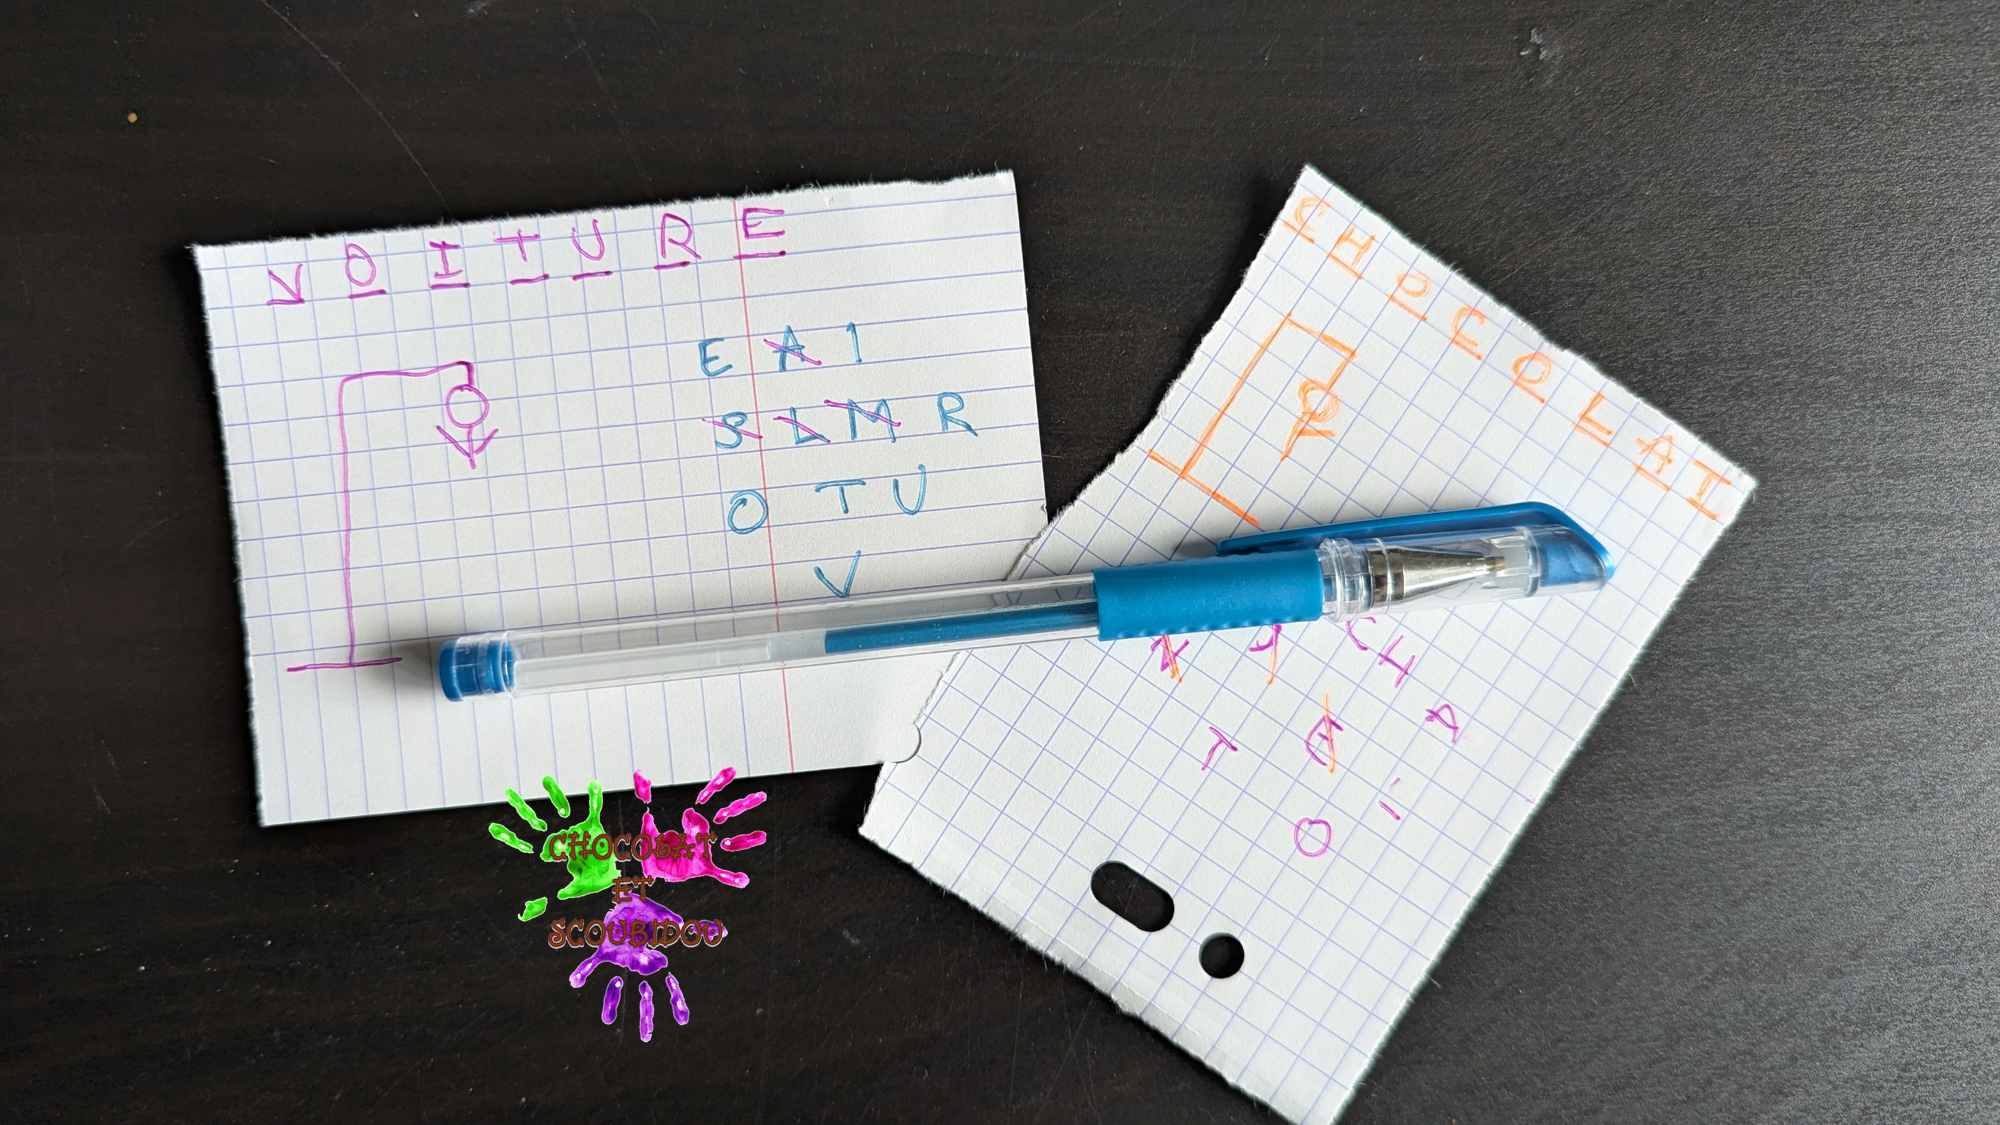 VOITURE
E A I
S L M R
O T U
V
CHOCOLAT
C H
T E A
O I
CHOCOLAT
ET
SCOUBIDOU